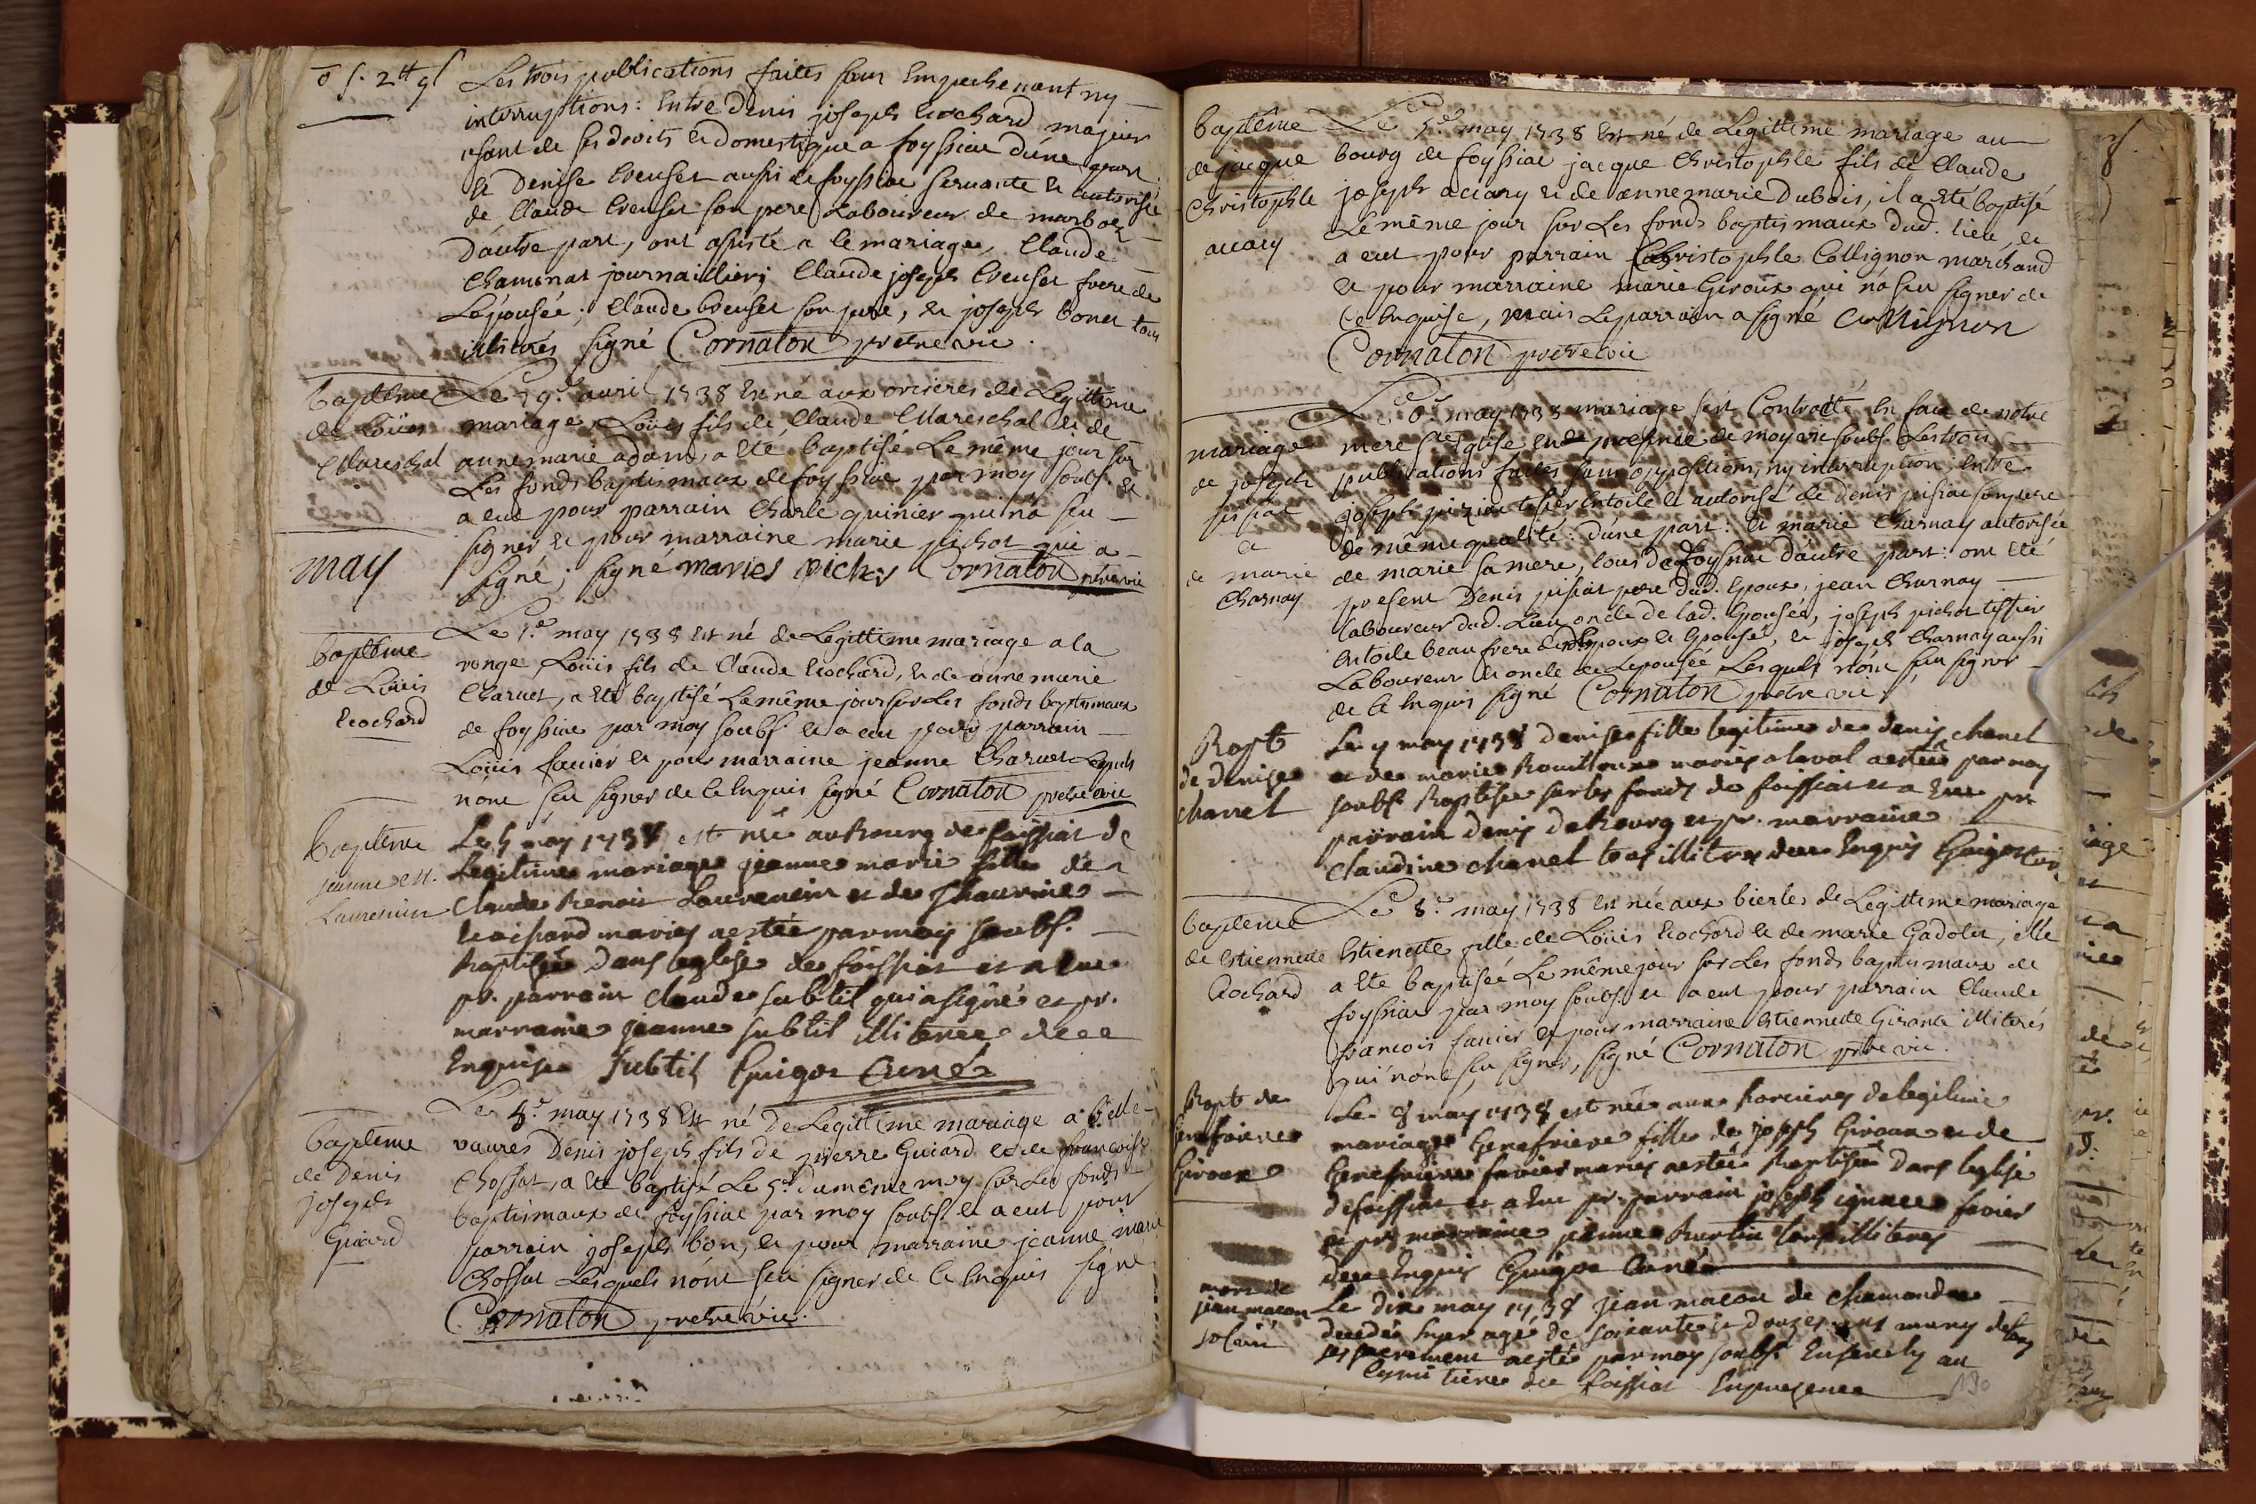 Les trois publications faites sans Empechement ny
interruptions: Entre Denis joseph Cochard majeur
usant de ses droits et domestique a foyssiac dúne part
et Denise Creuset aussi de foyssiac servante et autorisée
de Claude Creuset son pere Laboureur de marboz
Dáutre part, ont assisté a le mariage, Claude
Chaminat journaillier; Claude joseph Creuset frere de
Lépousée; Claude Creuset son pere, et joseph bonet tous
illiterés signé Cornaton pretre vic
baptême
de Loüis
Mareschal
Le 19.e avril 1738 Est né aux orcieres de Legittime
mariage, Loüis fils de Claude Mareschal et de
anne marie adam, a Eté baptisé Le même jour sur
Les fonds baptismaux de foyssiac par moy soubs. et
a eut pour parrain Charle quinier qui ná seu
signer et pour marraine marie pichot qui a
signé; signé maries Cornaton pretre vic
may
baptême
de Loüis
Cochard
Le 1.e may 1738 Est né de Legittime mariage a la
ronge, Loüis fils de Claude Cochard, et de anne marie
Charnet, a Eté baptisé Le même jour sur Les fonds baptismaux
de foyssiac par moy soubs. et a eut pour parrain
Loüis favier et pour marraine jeanne Charnet Lesquels
nont seu signer de Ce Enquis signé Cornaton pretre vic
baptême
jeanne M.
Laurencin
Le 5 may 1738 est née au Bourg de foissiat de
legitime mariage jeanne marie fille de
Claude Benoit Laurencin et de
Cochard mariés a estée par moy soubs.
Baptisée Dans leglise de foissiat et a Eue
pr. parrain Claude subtil qui a signé et pr.
marraine jeanne subtil illiterée de ce
Enquise Subtil Guigoz Curé
baptême
de Denis
joseph
Guiard
Le 4.e may 1738 Est né De Legittime mariage a
vavres Denis joseph fils de pierre Guiard et de francoise
Chossat, a Eté baptisé Le 5.e du même moy sur Les fonds
baptismaux de foyssiac par moy soubs. et a eut pour
parrain joseph bon, et pour marraine jeanne marie
Chossat Lesquels nónt seu signer de Ce Enquis signé
Cornaton pretre vic.
baptême
de jacque
Christophle
accary
Le 5.e may 1738 Est né de Legittime mariage au
bourg de foyssiac jacque Christophle fils de Claude
joseph accary et de anne marie Dubois, il a Eté baptisé
Le même jour sur Les fonds baptismaux dud. Lieu, et
a eut pour parrain Christophle Collignon marchand
et pour marraine marie Giroux qui ná seu signer de
Ce Enquise, mais Le parrain a signé Collignon
Cornaton pretre vic
mariage
de joseph
pisiat
et
de marie
Charnay
Le 6.e may 1738 mariage sést Contracté En face de notre
mere Ste Eglise En de presence de moy vic soubs. Les trois
publications faites sans oppositions, ny interruption; Entre
joseph pisiat tissier Entoile et autorisé de Denis pisiat son pere
de même qualité: dúne part: et marie Charnay autorisée
de marie sa mere, tous de foyssiac dáutre part: ont Eté
present Denis pisiat pere dud. Epoux, jean Charnay
laboureur dud. Lieu oncle de lad. Epousée, joseph pichot tissier
Entoile beau frere Epoux et Epousée, et joseph Charnay aussi
Laboureur et oncle de Lépousée Lesquels nónt seu signer
de Ce Enquis signé Cornaton pretre vic
Bapt
de Denise
chanel
Le 7 may 1738 denise fille legitime de denis chanel
et de marie mariés a laval a estée par moy
soubs. Baptisée sur les fonds de foissiat et a Eue pr.
parrain denis deBourg et pr. marraine
Claudine chanel tous illiterés de ce Enquis Guigoz Curé
baptême
de Estiennette
Cochard
Le 8.e may 1738 Est née aux bierles de Legittime mariage
Estiennette fille de Loüis Cochard et de marie Gadolet, elle
a Eté baptisée Le même jour sur Les fonds baptismaux de
foyssiac par moy soubs. et a eut pour parrain Claude
francois favier et pour marraine Estiennette Girante illiterés
qui nónt seu signer, signé Cornaton pretre vic
Bapt de
Genefvieve
Giroux
Le 8 may 1738 est née aux Horcieres de legitime
mariage Genefvieve fille de joseph Giroux et de
Genefvieve favier mariés a estée Baptisée Dans leglise
de foissiat et a Eue pr. parrain joseph ignace favier
et pr. marraine jeanne Burtin tous illiterés
de ce Enquis Guigoz Curé
mort de
jean macon
Le dix may 1738 jean macon de chamandre
decedé hyer agé de soixante et douze ans muny de tous
ses sacrement a esté par moy soubs. Ensevely au
Cymetiere de foissiat En presence
190